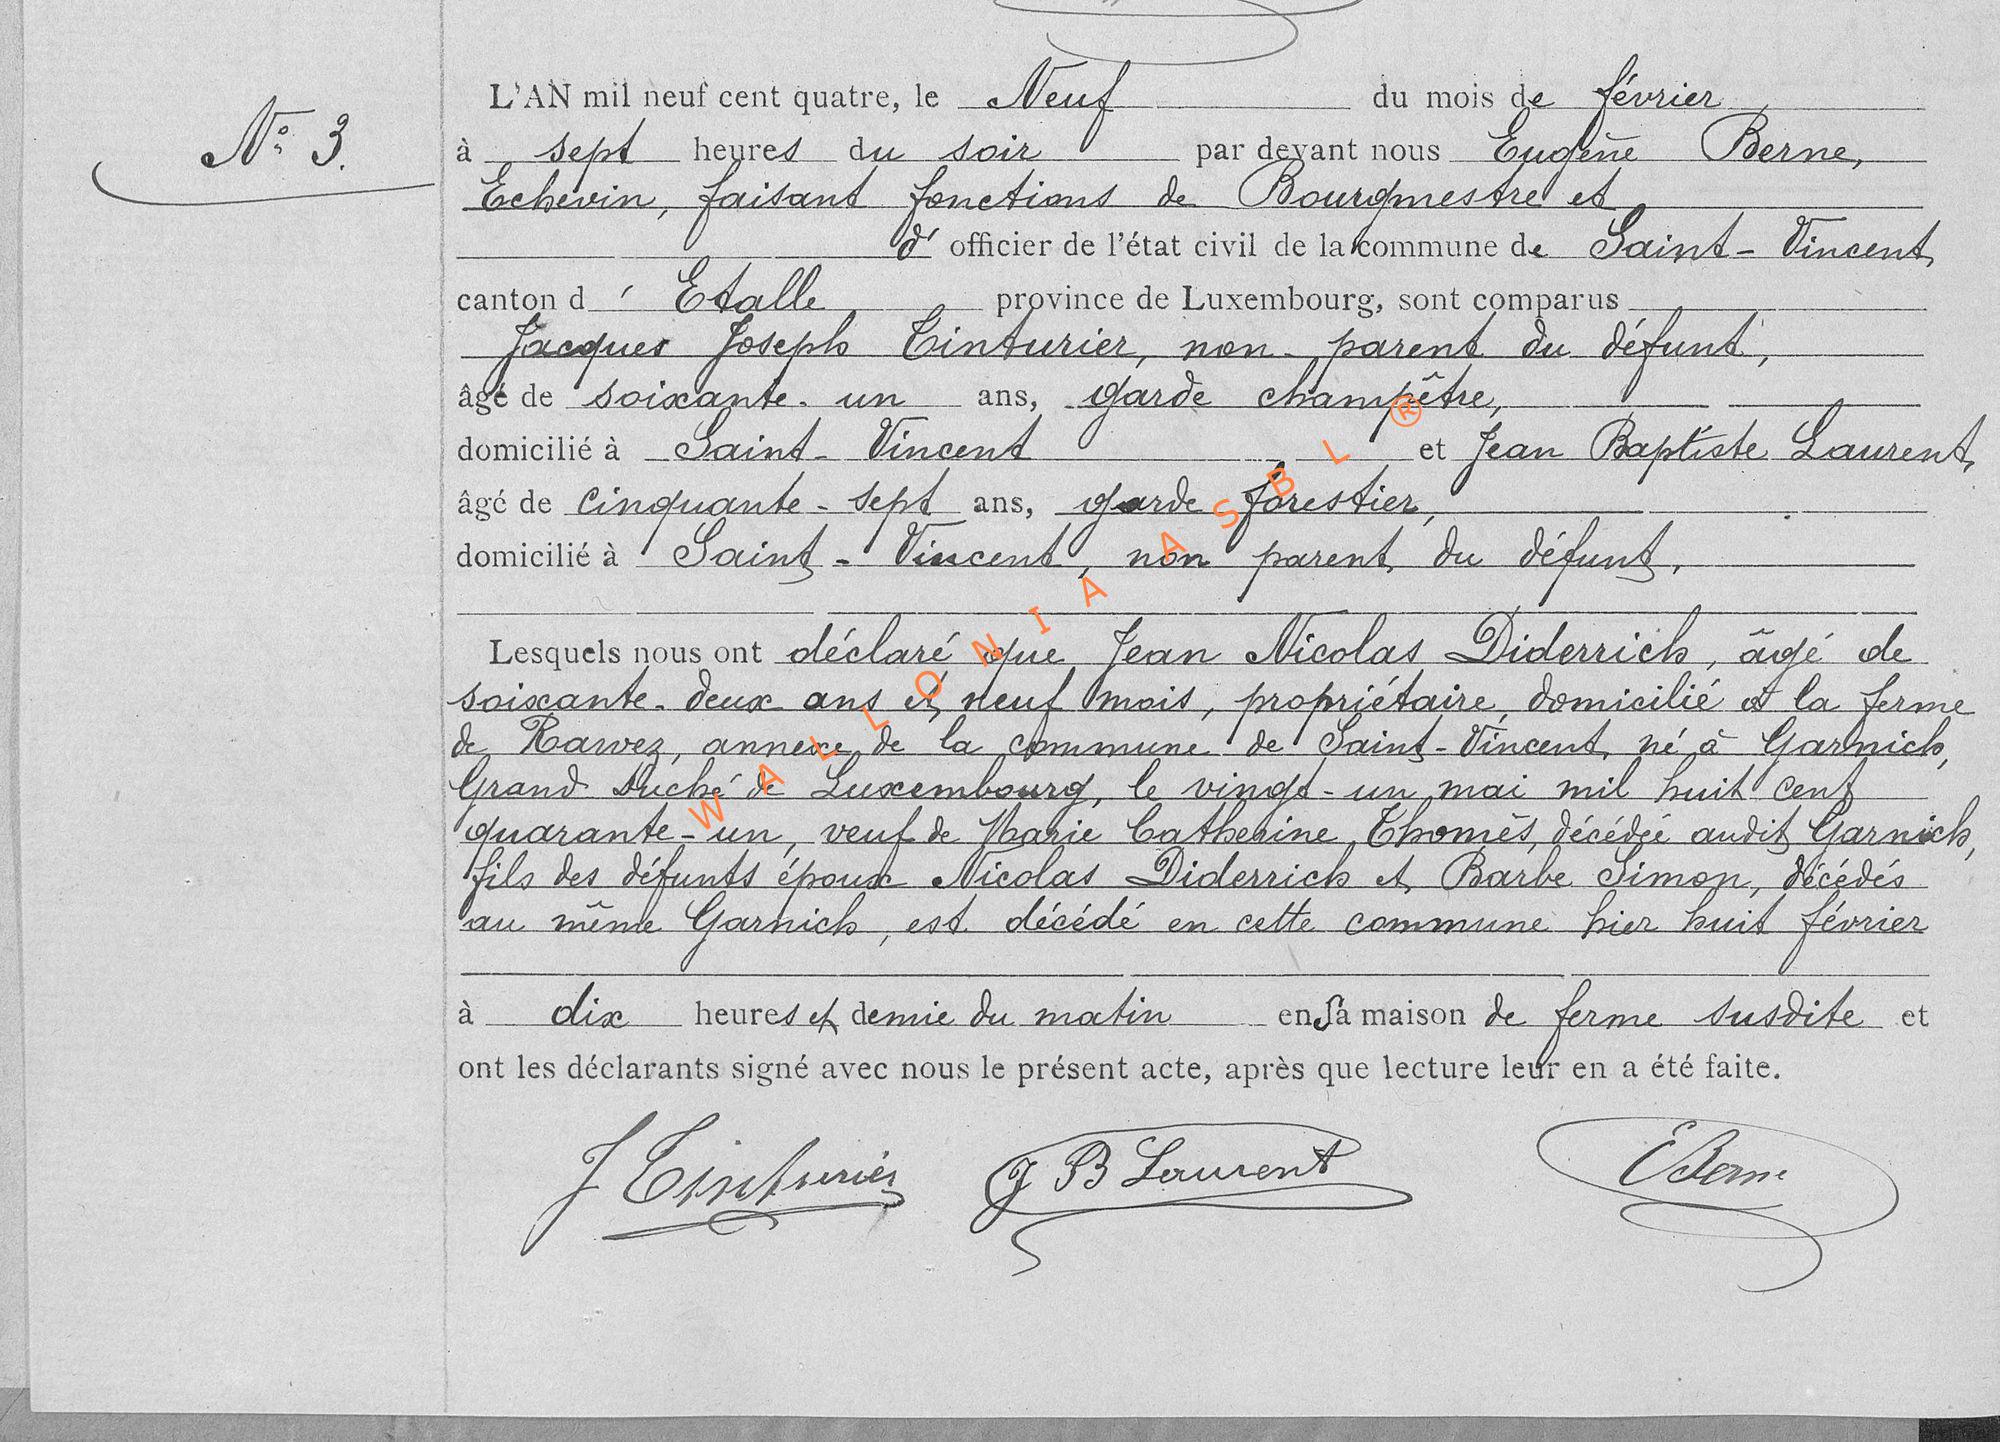 N° 3.
L'AN mil neuf cent quatre, le Neuf du mois de février
à sept heures du soir par devant nous Eugène Berne,
Echevin, faisant fonctions de Bourgmestre et
d' officier de l'état civil de la commune de Saint-Vincent
canton d' Etalle province de Luxembourg, sont comparus
Jacques Joseph Tinturier, non-parent du défunt,
âgé de soixante-un ans, garde champêtre,
domicilié à Saint-Vincent et Jean Baptiste Laurent,
âgé de cinquante-sept ans, garde forestier,
domicilié à Saint-Vincent, non parent du défunt.
Lesquels nous ont déclaré que Jean Nicolas Diderrich, âgé de
soixante-deux ans et neuf mois, propriétaire, domicilié à la ferme
de Rawez, annexe de la commune de Saint-Vincent, né à Garnich,
Grand Duché de Luxembourg, le vingt-un mai mil huit cent
quarante-un, veuf de Marie Catherine Thomès, décédée audit Garnich,
fils des défunts époux Nicolas Diderrich et Barbe Simon, décédés
au même Garnich, est décédé en cette commune hier huit février
à dix heures et demie du matin en sa maison de ferme susdite et
ont les déclarants signé avec nous le présent acte, après que lecture leur en a été faite.
J Tinturier J B Laurent E Berne
WALLONIA ASBL ®